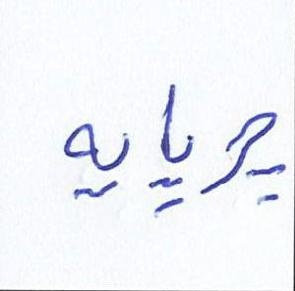 چرپایه